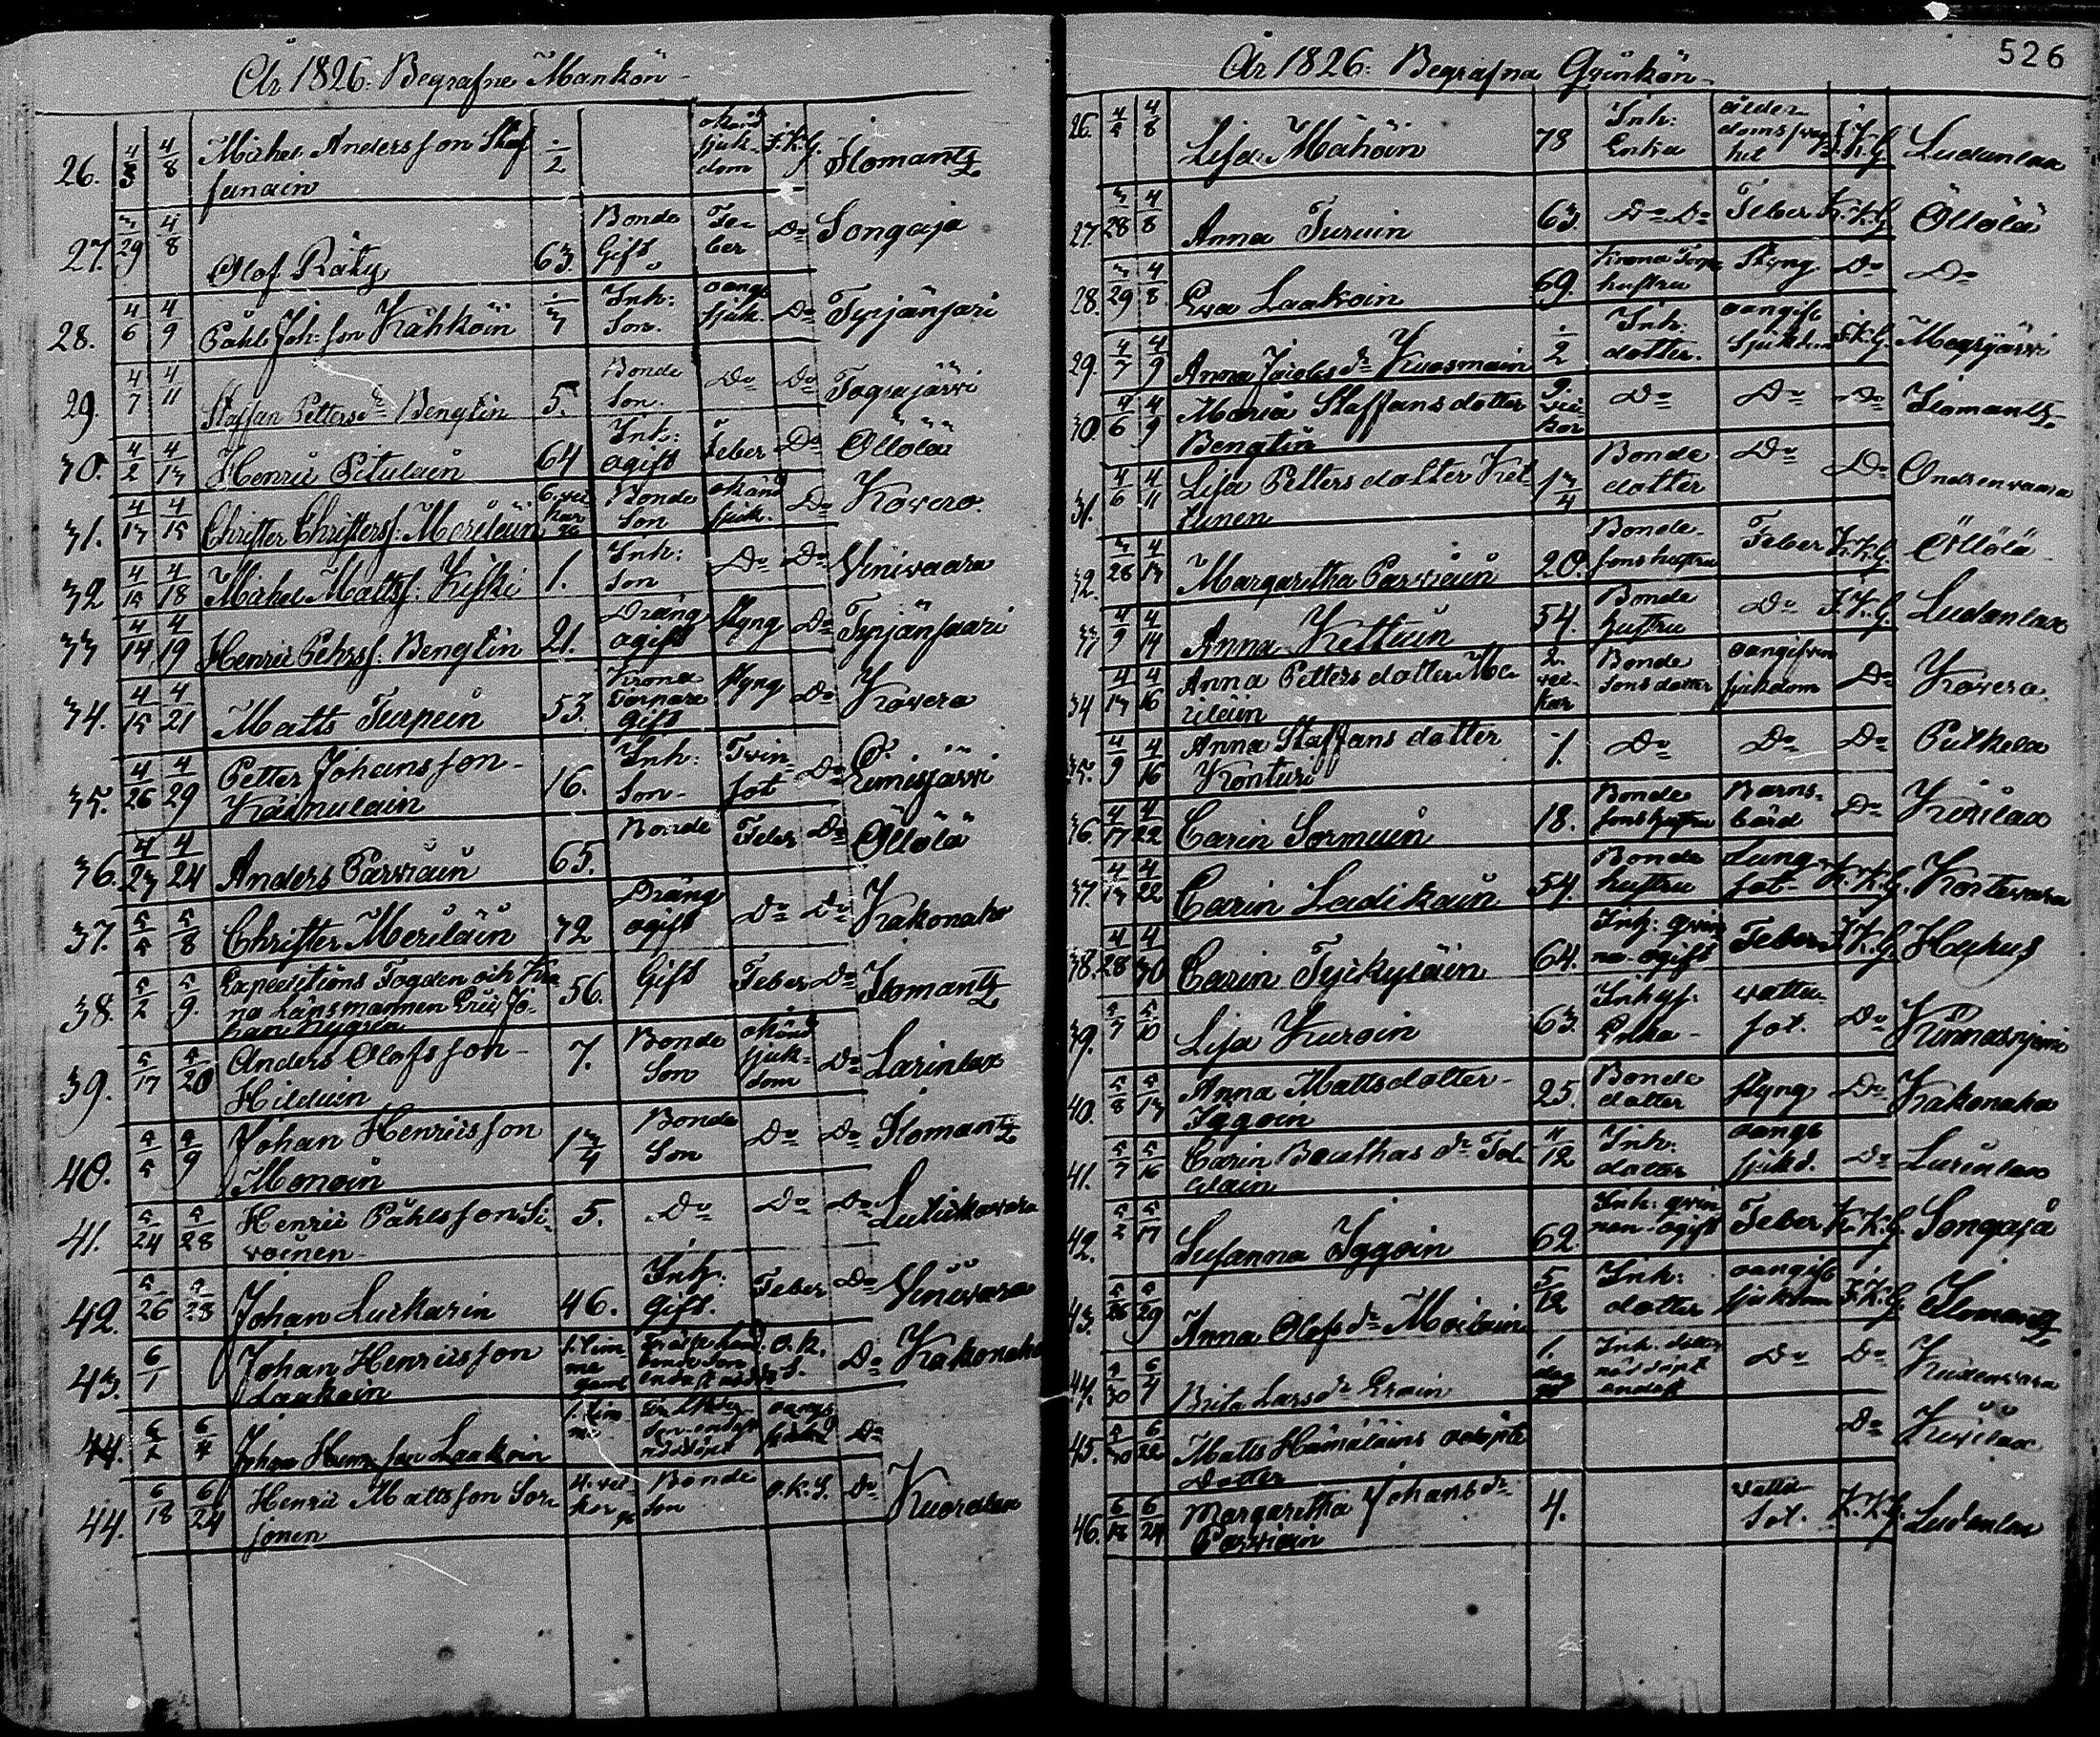 År 1826. Begrafne Mankön
26. 4/3 4/8 Michel Andersson 1/2 okänd sjukdom F.K.G. Ilomantz
27. 3/29 4/8 Olof Räty 63. Bonde Gift Feber Do Songaja
28. 4/6 4/9 Påhl Joh:son Kähköin Inh: Son. oangf sjuk. Do Tyrjänsari
29. 4/7 4/11 Staffan Petters Bengtin 5. Bonde Son. Do Do
30. 4/2 4/13 Henric Pitulain 64 Inh: ogift Feber Do Öllölä
31. 4/13 4/15 Christer Christersf: Meriläin 6. veckor Bonde Son okänd sjuk. Do Kovero.
32 4/15 4/18 Michel Mattsf: Kiski 1. Inh: Son Do Do Vinivaara
33 4/14 4/19 Henric Pehrsf: Bengtin 21. Dräng ogift Styng Do Tyrjänsaari
34. 4/15 4/21 Matts Turpein 53. Krono Torpare Gift Styng Do Kovero
35. 4/26 4/29 Petter Johansson
16. Inh: Son Tvinsot Do
36. 4/23 4/24 Anders Parviain 65. Bonde Feber Do Öllölä
37. 5/5 5/8 Christer Meriläin 72 Dräng ogift Do Do Kakonaho
38. 5/2 5/9. Expeditions Fogden och Kro
no Länsmannen Eric Jo-
han Nygren 56. Gift Feber Do Ilomantz
39. 5/17 5/20 Anders Olofsson
Hilduin 7. Bonde Son okänd sjukdom Do Larinlax
40. 5/5 5/9 Johan Henricsson
Monoin 1 3/4 Bonde Son Do Do Ilomantz
41. 5/24 5/28 Henric Påhlsson Si-
voinen 5. Do Do Do
42. 5/26 5/28 Johan Luckarin 46. Inh: Gift. Feber Do Vinivara
43. 6/1 Johan Henricsson
Laakoin 1. timme gaml o.k.S. Do Kakonaho
44. 6/2 6/4 Johan Henr:son Laakoin 1. timme Do
44. 6/18 6/24 Henric Mattsson Sor
jonen 4. veckor Bonde son o.k.S. Do Kuorelax
526
År 1826. Begrafna Qvinkön
26. 4/5 4/8 Lisa Mähöin 78 Inh: Enka ålderdomssvaghet F.K.G. Ludanlax
27. 3/28 4/8 Anna Turuin 63. Do Do Feber K.K.G. Öllölä
28. 3/29 4/8. Eva Laakoin 69. Krono Torp hustru Styng Do Do
29. 4/7 4/9 Anna Jacobs dr Kuosmain 1/2 Inh: dotter. oangif Sjukdom F.K.G. Megrijärvi
30 4/6 4/9 Maria Staffans dotter
Bengtin 9. veckor Do Do Do Ilomants
31. 4/6 4/11 Lisa Petters dotter Ket
tunen 1 3/4 Bonde dotter Do Do Ondrenvaara
32. 3/28 4/13 Margaretha Parviain 20. Bonde sons hustru Feber K.K.G. Öllölä
33 4/9 4/14 Anna Kettuin 54. Bonde hustru Do F.K.G. Ludanlax
34 4/13 4/16 Anna Petters dotter Me
riläin 2. veckor Bonde sons dotter oangifven sjukdom Do Kovero
35. 4/9 4/16 Anna Staffans dotter
Konturi 1. Do Do Do Putkela
36. 4/17 4/22 Carin Sormuin 18. Bonde sons hustru Barnsbörd Do Kuisilax
37. 4/13 4/22 Carin Ladikain 54. Bonde hustru Lungsot K.K.G. Kortevara
38. 4/28 4/30 Carin Tyckyläin 64. Inh: qvinna ogift Feber F.K.G. Hukus
39. 5/7 5/10 Lisa Kuroin 63. Inhys: Enka vattusot. Do
40. 5/8 5/13 Anna Mattsdotter
Iggoin 25. Bonde dotter Styng Do Kakonaho
41. 5/7 5/16 Carin
11/12 Inh: dotter oangf sjukd. Do Lurinlax
42. 5/2 5/17 Susanna Iggoin 62. Inh: qvinnan ogift Feber K.K.G. Songaja
43. 5/26 5/29 Anna Olofs dr Moilain 5/12 Inh: dotter oangif sjukdom F.K.G. Ilomantz
44. 5/30 6/4 Brita Lars dr Eroin 1. dag Inh. dotter nöddöpt endast Do Do
45. 5/30 6/22 Matts Hämäläins odöpte
Dotter Do Kuisilax
46. 6/18 6/24 Margaretha Johans dr
Parviain 4. vattusot. K.K.G. Ludanlax